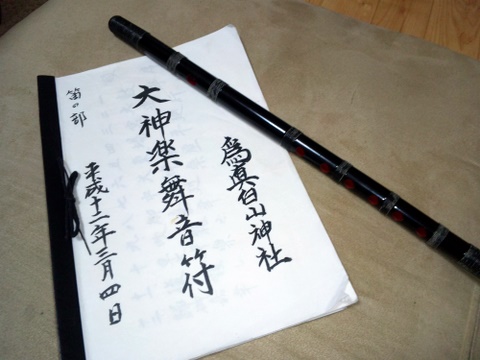 為真白山神社
大神楽舞音符
笛の部
平成十二年三月四日